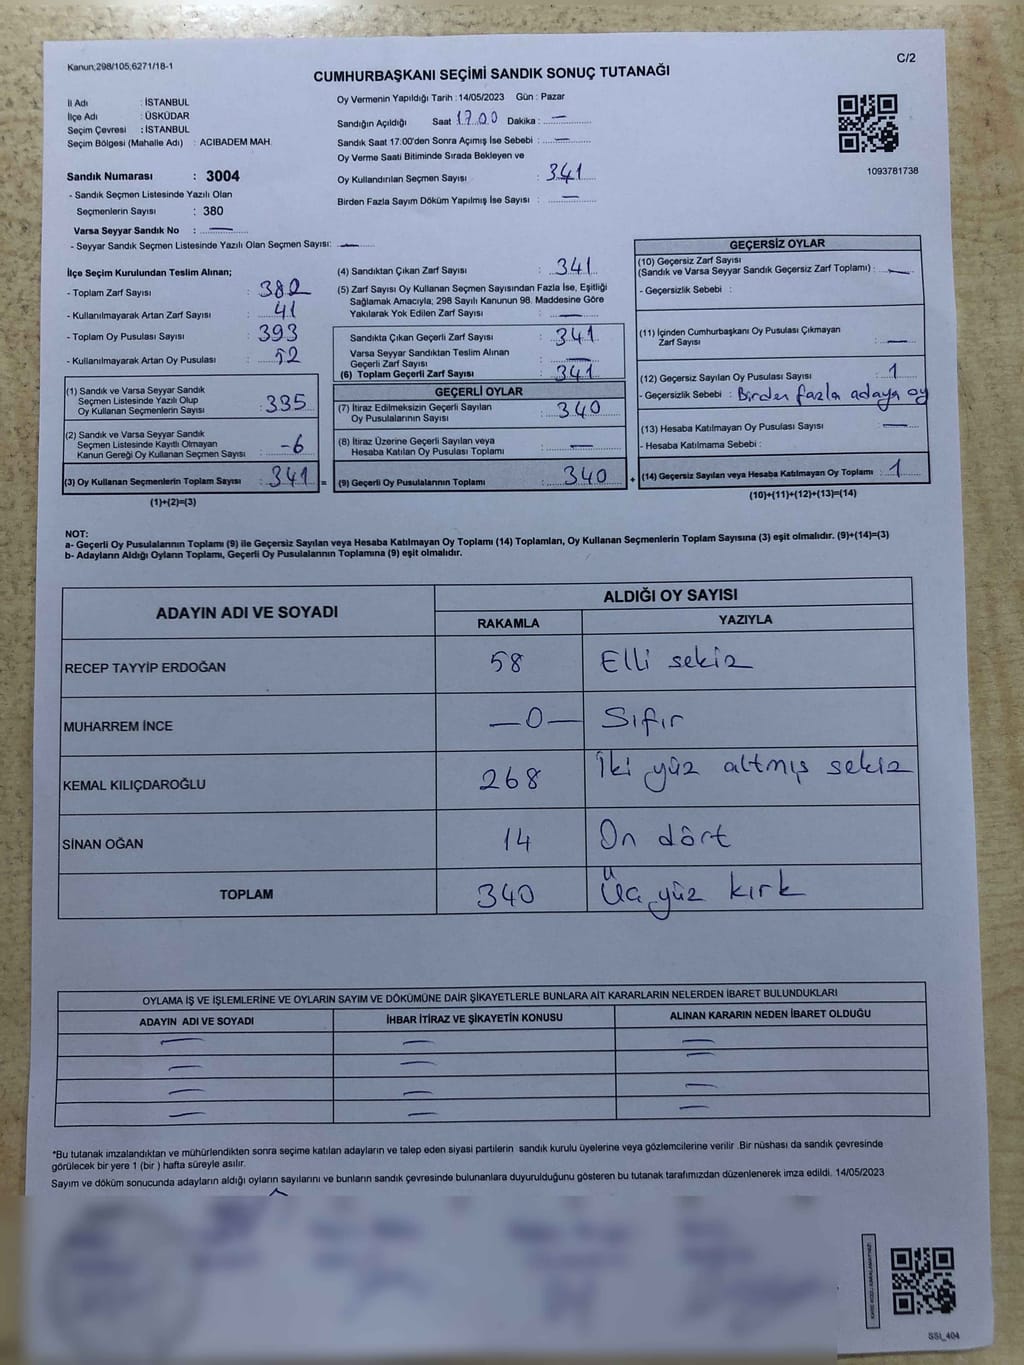 Kanun;298/105;6271/18-1
C/2
CUMHURBAŞKANI SEÇİMİ SANDIK SONUÇ TUTANAĞI
İl Adı : İSTANBUL
İlçe Adı : ÜSKÜDAR
Seçim Çevresi : İSTANBUL
Seçim Bölgesi (Mahalle Adı) : ACIBADEM MAH.
Sandık Numarası : 3004
- Sandık Seçmen Listesinde Yazılı Olan
Seçmenlerin Sayısı : 380
Varsa Seyyar Sandık No : —
- Seyyar Sandık Seçmen Listesinde Yazılı Olan Seçmen Sayısı: —
Oy Vermenin Yapıldığı Tarih : 14/05/2023 Gün : Pazar
Sandığın Açıldığı Saat 17.00 Dakika : —
Sandık Saat 17:00'den Sonra Açımış İse Sebebi : —
Oy Verme Saati Bitiminde Sırada Bekleyen ve
Oy Kullandırılan Seçmen Sayısı : 341
Birden Fazla Sayım Döküm Yapılmış İse Sayısı : —
1093781738
İlçe Seçim Kurulundan Teslim Alınan;
- Toplam Zarf Sayısı : 382
- Kullanılmayarak Artan Zarf Sayısı : 41
- Toplam Oy Pusulası Sayısı : 393
- Kullanılmayarak Artan Oy Pusulası : 52
(1) Sandık ve Varsa Seyyar Sandık
Seçmen Listesinde Yazılı Olup
Oy Kullanan Seçmenlerin Sayısı : 335
(2) Sandık ve Varsa Seyyar Sandık
Seçmen Listesinde Kayıtlı Olmayan
Kanun Gereği Oy Kullanan Seçmen Sayısı : -6
(3) Oy Kullanan Seçmenlerin Toplam Sayısı : 341 =
(1)+(2)=(3)
(4) Sandıktan Çıkan Zarf Sayısı : 341
(5) Zarf Sayısı Oy Kullanan Seçmen Sayısından Fazla İse, Eşitliği
Sağlamak Amacıyla; 298 Sayılı Kanunun 98. Maddesine Göre
Yakılarak Yok Edilen Zarf Sayısı : —
Sandıkta Çıkan Geçerli Zarf Sayısı : 341
Varsa Seyyar Sandıktan Teslim Alınan
Geçerli Zarf Sayısı : —
(6) Toplam Geçerli Zarf Sayısı : 341
GEÇERLİ OYLAR
(7) İtiraz Edilmeksizin Geçerli Sayılan
Oy Pusulalarının Sayısı : 340
(8) İtiraz Üzerine Geçerli Sayılan veya
Hesaba Katılan Oy Pusulası Toplamı : —
(9) Geçerli Oy Pusulalarının Toplamı : 340 +
GEÇERSİZ OYLAR
(10) Geçersiz Zarf Sayısı
(Sandık ve Varsa Seyyar Sandık Geçersiz Zarf Toplamı) : —
- Geçersizlik Sebebi :
(11) İçinden Cumhurbaşkanı Oy Pusulası Çıkmayan
Zarf Sayısı : —
(12) Geçersiz Sayılan Oy Pusulası Sayısı : 1
- Geçersizlik Sebebi : Birden fazla adaya oy
(13) Hesaba Katılmayan Oy Pusulası Sayısı : —
- Hesaba Katılmama Sebebi :
(14) Geçersiz Sayılan veya Hesaba Katılmayan Oy Toplamı : 1
(10)+(11)+(12)+(13)=(14)
NOT:
a- Geçerli Oy Pusulalarının Toplamı (9) ile Geçersiz Sayılan veya Hesaba Katılmayan Oy Toplamı (14) Toplamları, Oy Kullanan Seçmenlerin Toplam Sayısına (3) eşit olmalıdır. (9)+(14)=(3)
b- Adayların Aldığı Oyların Toplamı, Geçerli Oy Pusulalarının Toplamına (9) eşit olmalıdır.
ADAYIN ADI VE SOYADI
ALDIĞI OY SAYISI
RAKAMLA YAZIYLA
RECEP TAYYİP ERDOĞAN 58 Elli sekiz
MUHARREM İNCE —0— Sıfır
KEMAL KILIÇDAROĞLU 268 İki yüz altmış sekiz
SİNAN OĞAN 14 On dört
TOPLAM 340 Üç yüz kırk
OYLAMA İŞ VE İŞLEMLERİNE VE OYLARIN SAYIM VE DÖKÜMÜNE DAİR ŞİKAYETLERLE BUNLARA AİT KARARLARIN NELERDEN İBARET BULUNDUKLARI
ADAYIN ADI VE SOYADI İHBAR İTİRAZ VE ŞİKAYETİN KONUSU ALINAN KARARIN NEDEN İBARET OLDUĞU
— — —
— — —
— — —
— — —
*Bu tutanak imzalandıktan ve mühürlendikten sonra seçime katılan adayların ve talep eden siyasi partilerin sandık kurulu üyelerine veya gözlemcilerine verilir .Bir nüshası da sandık çevresinde
görülecek bir yere 1 (bir ) hafta süreyle asılır.
Sayım ve döküm sonucunda adayların aldığı oyların sayılarını ve bunların sandık çevresinde bulunanlara duyurulduğunu gösteren bu tutanak tarafımızdan düzenlenerek imza edildi. 14/05/2023
SSI_404